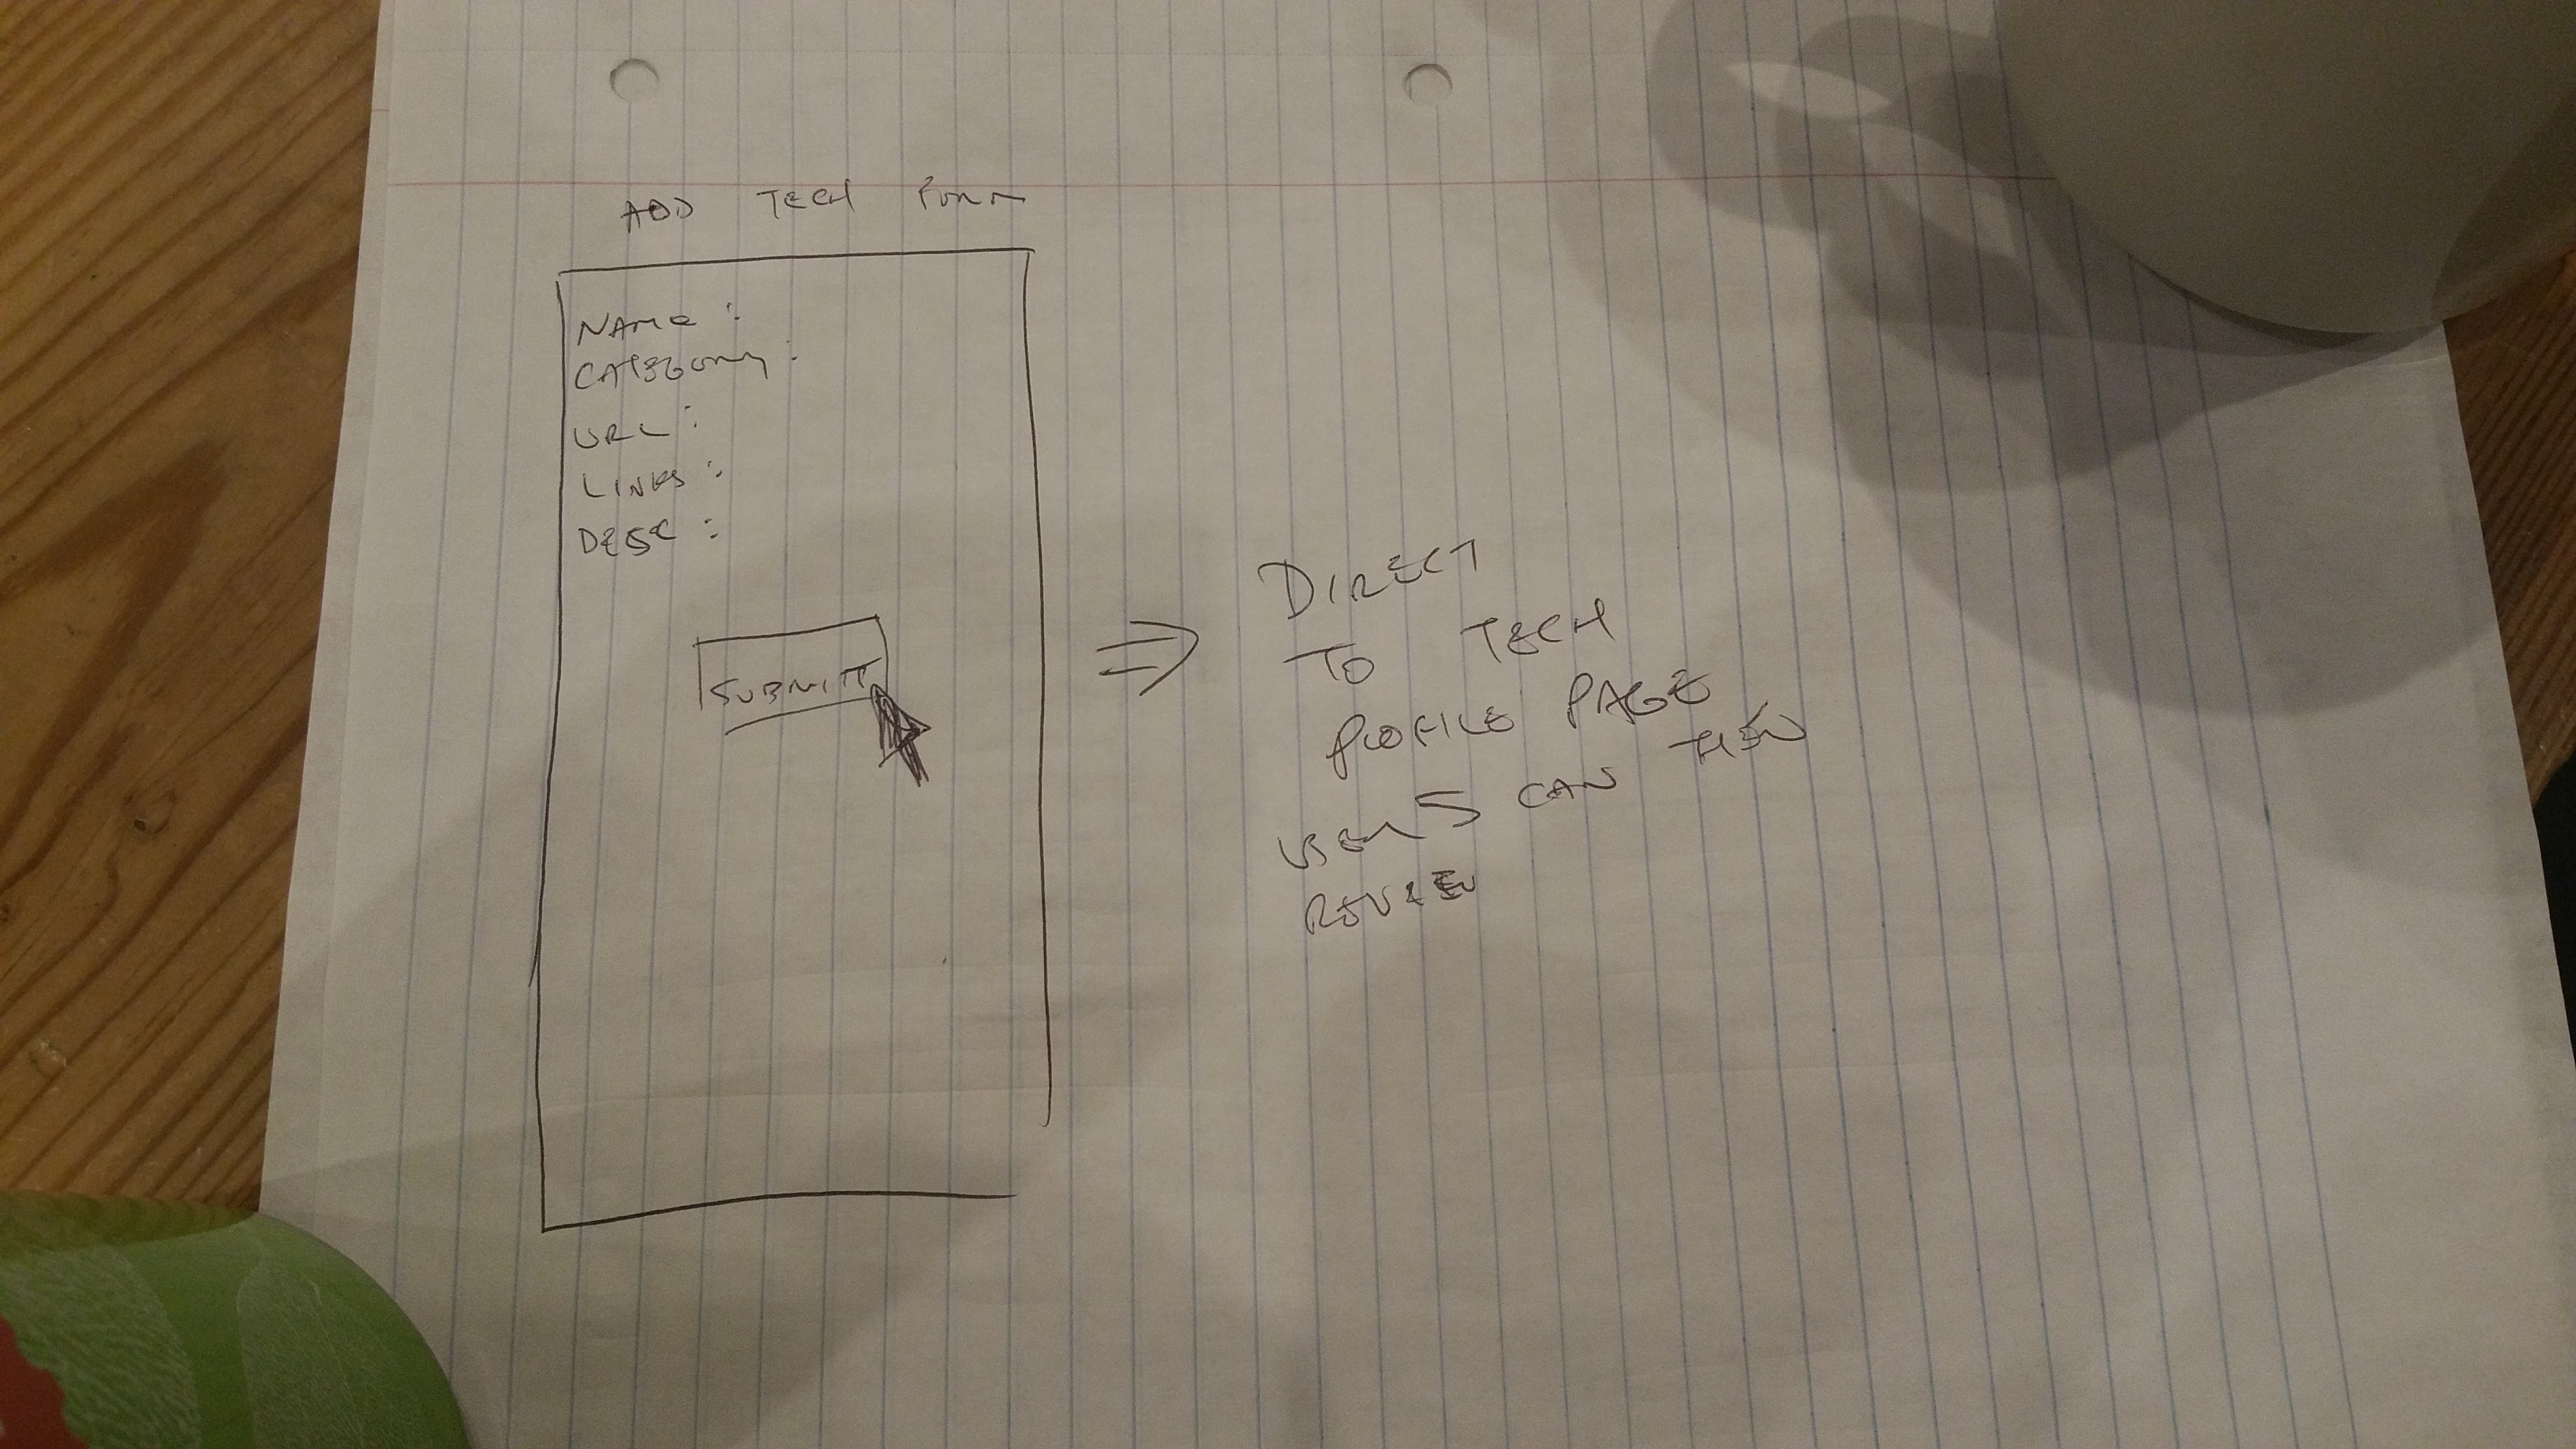 ADD TECH FORM
NAME :
CATEGORY :
URL :
LINKS :
DESC :
SUBMIT
DIRECT
TO TECH
PROFILE PAGE
USERS CAN THEN
REVIEW